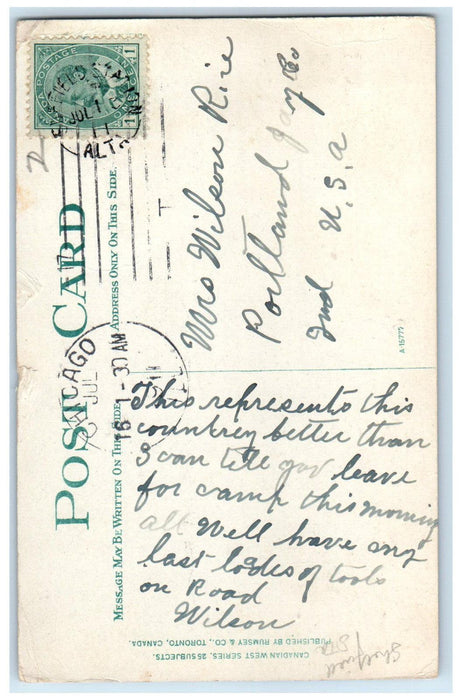 POST CARD
MESSAGE MAY BE WRITTEN ON THIS SIDE.
ADDRESS ONLY ON THIS SIDE.
CANADA POSTAGE
1 1
JUL 1
ALTA
CHICAGO
JUL
16 1-30 AM
Mrs Wilson Rice
Portland Jay Co
Ind U.S.A
A-16777
This represents this
countrey better than
I can tell you leave
for camp this morning
all well have my
last lodes of tools
on Road
Wilson
CANADIAN WEST SERIES, 25 SUBJECTS.
PUBLISHED BY RUMSEY & CO., TORONTO, CANADA.